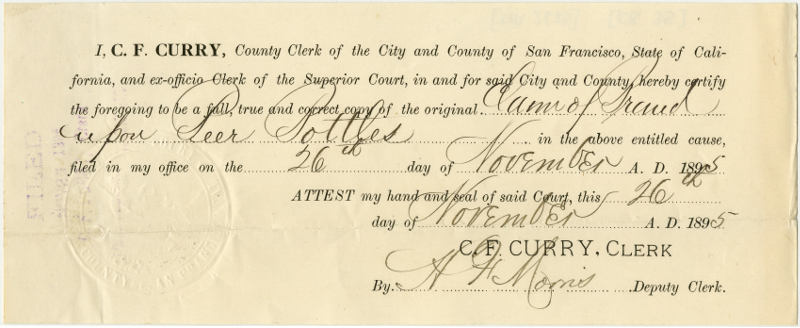 I, C. F. CURRY, County Clerk of the City and County of San Francisco, State of Cali-
fornia, and ex-officio Clerk of the Superior Court, in and for said City and County, hereby certify
the foregoing to be a full, true and correct copy of the original Claim of Brand
upon Beer Bottles in the above entitled cause,
filed in my office on the 26th day of November A. D. 1895
ATTEST my hand and seal of said Court, this 26th
day of November A. D. 1895
C. F. CURRY, CLERK
By Morris Deputy Clerk.
FILED